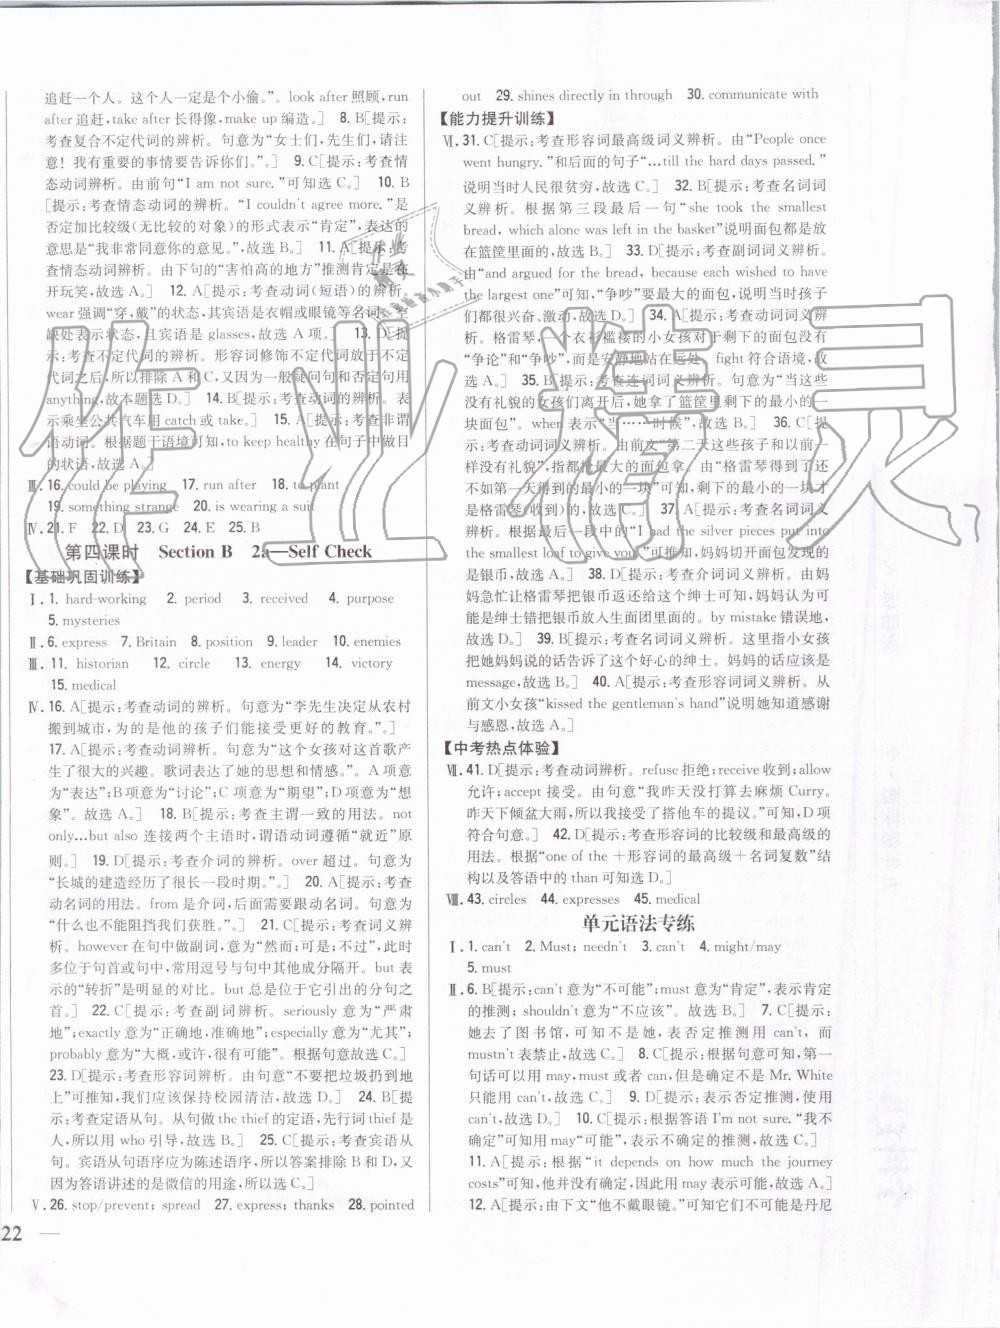 追赶一个人。这个人一定是个小偷。”。look after 照顾, run
after 追赶, take after 长得像, make up 编造。] 8. B[提示:
考查复合不定代词的辨析。句意为“女士们,先生们,请注
意！我有重要的事情要告诉你们。”。] 9. C[提示:考查情
态动词辨析。由前句“I am not sure.”可知选 C。] 10. B
[提示:考查情态动词的辨析。“I couldn't agree more.”是
否定加比较级(无比较的对象)的形式表示“肯定”,表达的
意思是“我非常同意你的意见。”,故选 B。] 11. A[提示:考
查情态动词辨析。由下句的“害怕高的地方”推测肯定是在
开玩笑,故选 A。] 12. A[提示:考查动词(短语)的辨析。
wear 强调“穿,戴”的状态,其宾语是衣帽或眼镜等名词。空
缺处表示状态,且宾语是 glasses,故选 A 项。] 13. D[提
示:考查不定代词的辨析。形容词修饰不定代词时放于不定
代词之后,所以排除 A 和 C,又因为一般疑问句和否定句用
anything,故本题选 D。] 14. B[提示:考查动词辨析。表
示乘坐公共汽车用 catch 或 take。] 15. A[提示:考查非谓
语动词。根据题干语境可知,to keep healthy 在句子中做目
的状语,故选 A。]
Ⅲ. 16. could be playing 17. run after 18. to plant
19. something strange 20. is wearing a suit
Ⅳ. 21. F 22. D 23. G 24. E 25. B
第四课时 Section B 2a—Self Check
【基础巩固训练】
Ⅰ. 1. hard-working 2. period 3. received 4. purpose
5. mysteries
Ⅱ. 6. express 7. Britain 8. position 9. leader 10. enemies
Ⅲ. 11. historian 12. circle 13. energy 14. victory
15. medical
Ⅳ. 16. A[提示:考查动词的辨析。句意为“李先生决定从农村
搬到城市,为的是他的孩子们能接受更好的教育。”。]
17. A[提示:考查动词辨析。句意为“这个女孩对这首歌产
生了很大的兴趣。歌词表达了她的思想和情感。”。A 项意
为“表达”;B 项意为“讨论”;C 项意为“期望”;D 项意为“想
象”。故选 A。] 18. A[提示:考查主谓一致的用法。not
only…but also 连接两个主语时,谓语动词遵循“就近”原
则。] 19. D[提示:考查介词的辨析。over 超过。句意为
“长城的建造经历了很长一段时期。”。] 20. A[提示:考查
动名词的用法。from 是介词,后面需要跟动名词。句意为
“什么也不能阻挡我们获胜。”。] 21. C[提示:考查词义辨
析。however 在句中做副词,意为“然而;可是;不过”,此时
多位于句首或句中,常用逗号与句中其他成分隔开。but 表
示的“转折”是明显的对比。but 总是位于它引出的分句之
首。] 22. C[提示:考查副词辨析。seriously 意为“严肃
地”;exactly 意为“正确地,准确地”;especially 意为“尤其”;
probably 意为“大概,或许,很有可能”。根据句意故选 C。]
23. D[提示:考查形容词辨析。由句意“不要把垃圾扔到地
上”可推知,我们应该保持校园清洁,故选 D。] 24. B[提
示:考查定语从句。从句做 the thief 的定语,先行词 thief 是
人,所以用 who 引导,故选 B。] 25. C[提示:考查宾语从
句。宾语从句语序应为陈述语序,所以答案排除 B 和 D,又
因为答语讲述的是微信的用途,所以选 C。]
Ⅴ. 26. stop/prevent; spread 27. express; thanks 28. pointed
22
out 29. shines directly in through 30. communicate with
【能力提升训练】
Ⅵ. 31. C[提示:考查形容词最高级词义辨析。由“People once
went hungry.”和后面的句子“…till the hard days passed.”
说明当时人民很贫穷,故选 C。] 32. B[提示:考查名词词
义辨析。根据第三段最后一句“she took the smallest
bread, which alone was left in the basket”说明面包都是放
在篮筐里面的,故选 B。] 33. D[提示:考查副词词义辨析。
由“and argued for the bread, because each wished to have
the largest one”可知,“争吵”要最大的面包,说明当时孩子
们都很兴奋、激动,故选 D。] 34. A[提示:考查动词词义辨
析。格雷琴,一个衣衫褴褛的小女孩对于剩下的面包没有
“争论”和“争吵”,而是安静地站在远处。fight 符合语境,故
选 A。] 35. B[提示:考查连词词义辨析。句意为“当这些
没有礼貌的孩子们离开后,她拿了篮筐里剩下的最小的一
块面包”。when 表示“当……时候”,故选 B。] 36. C[提
示:考查动词词义辨析。由前文“第二天这些孩子和以前一
样没有礼貌”,指都抢最大的面包拿。由“格雷琴得到了还
不如第一天得到的最小的一块”可知,剩下的最小的一块才
是格雷琴(收到)的,故选 C。] 37. A[提示:考查名词词义
辨析。根据最后一段中的“I had the silver pieces put into
the smallest loaf to give you.”可推知,妈妈切面包发现的
是银币,故选 A。] 38. D[提示:考查介词词义辨析。由妈
妈急忙让格雷琴把银币返还给这个绅士可知,妈妈可能认
为是绅士错把银币放入生面团里面的,by mistake 错误地,
故选 D。] 39. B[提示:考查名词词义辨析。这里指小女孩
把她妈妈说的话告诉了这个好心的绅士。妈妈的话应该是
message,故选 B。] 40. A[提示:考查形容词词义辨析。从
前文小女孩“kissed the gentleman's hand”说明她知道感谢
与感恩,故选 A。]
【中考热点体验】
Ⅶ. 41. D[提示:考查动词辨析。refuse 拒绝;receive 收到;allow
允许;accept 接受。由句意“我昨天没打算去麻烦 Curry。
昨天下倾盆大雨,所以我接受了搭他的车的提议。”可知,D 项
符合句意。] 42. D[提示:考查形容词的比较级和最高级的
用法。根据“one of the＋形容词的最高级＋名词复数”结
构以及答语中的 than 可知选 D。]
Ⅷ. 43. circles 44. expresses 45. medical
单元语法专练
Ⅰ. 1. can't 2. Must; needn't 3. can't 4. might/may
5. must
Ⅱ. 6. B[提示:can't 意为“不可能”;must 意为“肯定”,表示肯定
的推测;shouldn't 意为“不应该”。故选 B。] 7. C[提示:
她去了图书馆,可知不是她,表否定推测用 can't,而
mustn't 表禁止,故选 C。] 8. C[提示:根据句意可知,第一
句话可以用 may,must 或者 can,但是第二句不是 Mr. White
只能用 can't,故选 C。] 9. D[提示:表示否定推测,使用
can't,故选 D。] 10. C[提示:根据答语 I'm not sure. “我不
确定”可知用 may“可能”,表示不确定的推测,故选 C。]
11. A[提示:根据“it depends on how much the journey
costs”可知,他并没有确定,因此用 may 表示可能,故选 A。]
12. A[提示:由下文“他不戴眼镜。”可知它们不可能是丹尼